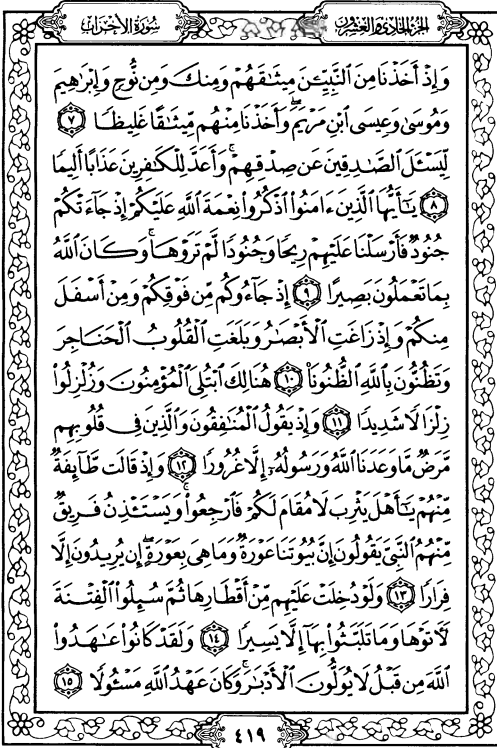 سُورَةُ الأَحْزَابِ
الجُزْءُ الحَادِي وَالعِشْرُونَ
وَإِذْ أَخَذْنَا مِنَ ٱلنَّبِيِّـۧنَ مِيثَٰقَهُمْ وَمِنكَ وَمِن نُّوحٍ وَإِبْرَٰهِيمَ
وَمُوسَىٰ وَعِيسَى ٱبْنِ مَرْيَمَ ۖ وَأَخَذْنَا مِنْهُم مِّيثَٰقًا غَلِيظًا ٧
لِّيَسْـَٔلَ ٱلصَّٰدِقِينَ عَن صِدْقِهِمْ ۚ وَأَعَدَّ لِلْكَٰفِرِينَ عَذَابًا أَلِيمًا
٨ يَٰٓأَيُّهَا ٱلَّذِينَ ءَامَنُوا۟ ٱذْكُرُوا۟ نِعْمَةَ ٱللَّهِ عَلَيْكُمْ إِذْ جَآءَتْكُمْ
جُنُودٌ فَأَرْسَلْنَا عَلَيْهِمْ رِيحًا وَجُنُودًا لَّمْ تَرَوْهَا ۚ وَكَانَ ٱللَّهُ
بِمَا تَعْمَلُونَ بَصِيرًا ٩ إِذْ جَآءُوكُم مِّن فَوْقِكُمْ وَمِنْ أَسْفَلَ
مِنكُمْ وَإِذْ زَاغَتِ ٱلْأَبْصَٰرُ وَبَلَغَتِ ٱلْقُلُوبُ ٱلْحَنَاجِرَ
وَتَظُنُّونَ بِٱللَّهِ ٱلظُّنُونَا۠ ١٠ هُنَالِكَ ٱبْتُلِىَ ٱلْمُؤْمِنُونَ وَزُلْزِلُوا۟
زِلْزَالًا شَدِيدًا ١١ وَإِذْ يَقُولُ ٱلْمُنَٰفِقُونَ وَٱلَّذِينَ فِى قُلُوبِهِم
مَّرَضٌ مَّا وَعَدَنَا ٱللَّهُ وَرَسُولُهُۥٓ إِلَّا غُرُورًا ١٢ وَإِذْ قَالَت طَّآئِفَةٌ
مِّنْهُمْ يَٰٓأَهْلَ يَثْرِبَ لَا مُقَامَ لَكُمْ فَٱرْجِعُوا۟ ۚ وَيَسْتَـْٔذِنُ فَرِيقٌ
مِّنْهُمُ ٱلنَّبِىَّ يَقُولُونَ إِنَّ بُيُوتَنَا عَوْرَةٌ وَمَا هِىَ بِعَوْرَةٍ ۖ إِن يُرِيدُونَ إِلَّا
فِرَارًا ١٣ وَلَوْ دُخِلَتْ عَلَيْهِم مِّنْ أَقْطَارِهَا ثُمَّ سُئِلُوا۟ ٱلْفِتْنَةَ
لَـَٔاتَوْهَا وَمَا تَلَبَّثُوا۟ بِهَآ إِلَّا يَسِيرًا ١٤ وَلَقَدْ كَانُوا۟ عَٰهَدُوا۟
ٱللَّهَ مِن قَبْلُ لَا يُوَلُّونَ ٱلْأَدْبَٰرَ ۚ وَكَانَ عَهْدُ ٱللَّهِ مَسْـُٔولًا ١٥
٤١٩